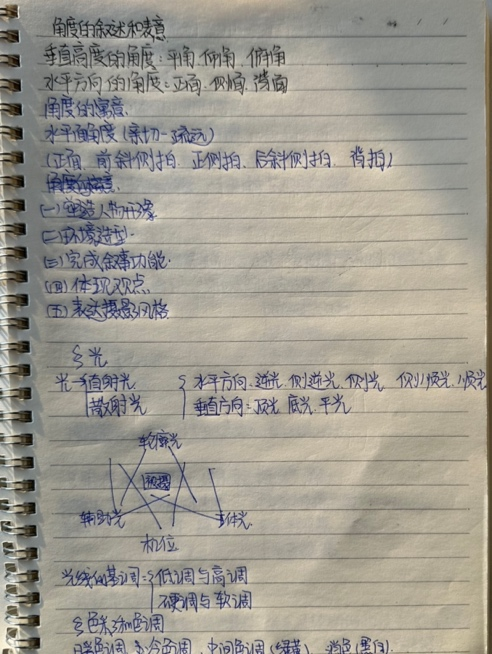 角度的叙述和表意
垂直高度的角度:平角、仰角、俯角
水平方向的角度:正面、侧面、背面
角度的寓意
水平面角度(亲切—疏远)
(正面、前斜侧拍、正侧拍、后斜侧拍、背拍)
角度的寓意
(一)塑造人物形象
(二)环境造型
(三)完成叙事功能
(四)体现观点
(五)表达摄影风格
光
光 直射光 水平方向、逆光、侧逆光、侧光、侧顺光、顺光
散射光 垂直方向:顶光、底光、平光
轮廓光
被摄
辅助光 主体光
机位
光线的基调:低调与高调
硬调与软调
色彩和色调
暖色调、冷色调、中间色调(绿黄)、消色(黑白)